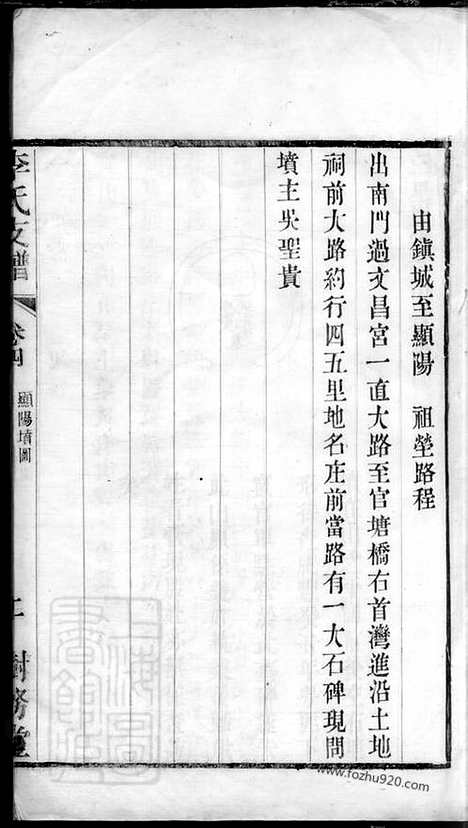 由鎭城至顯陽　祖塋路程
出南門過文昌宮一直大路至官塘橋右首灣進沿土地
祠前大路約行四五里地名庄前當路有一大石碑現問
墳主吳聖貴
李氏支譜
卷四
顯陽墳圖
樹務堂
www.fozhu920.com